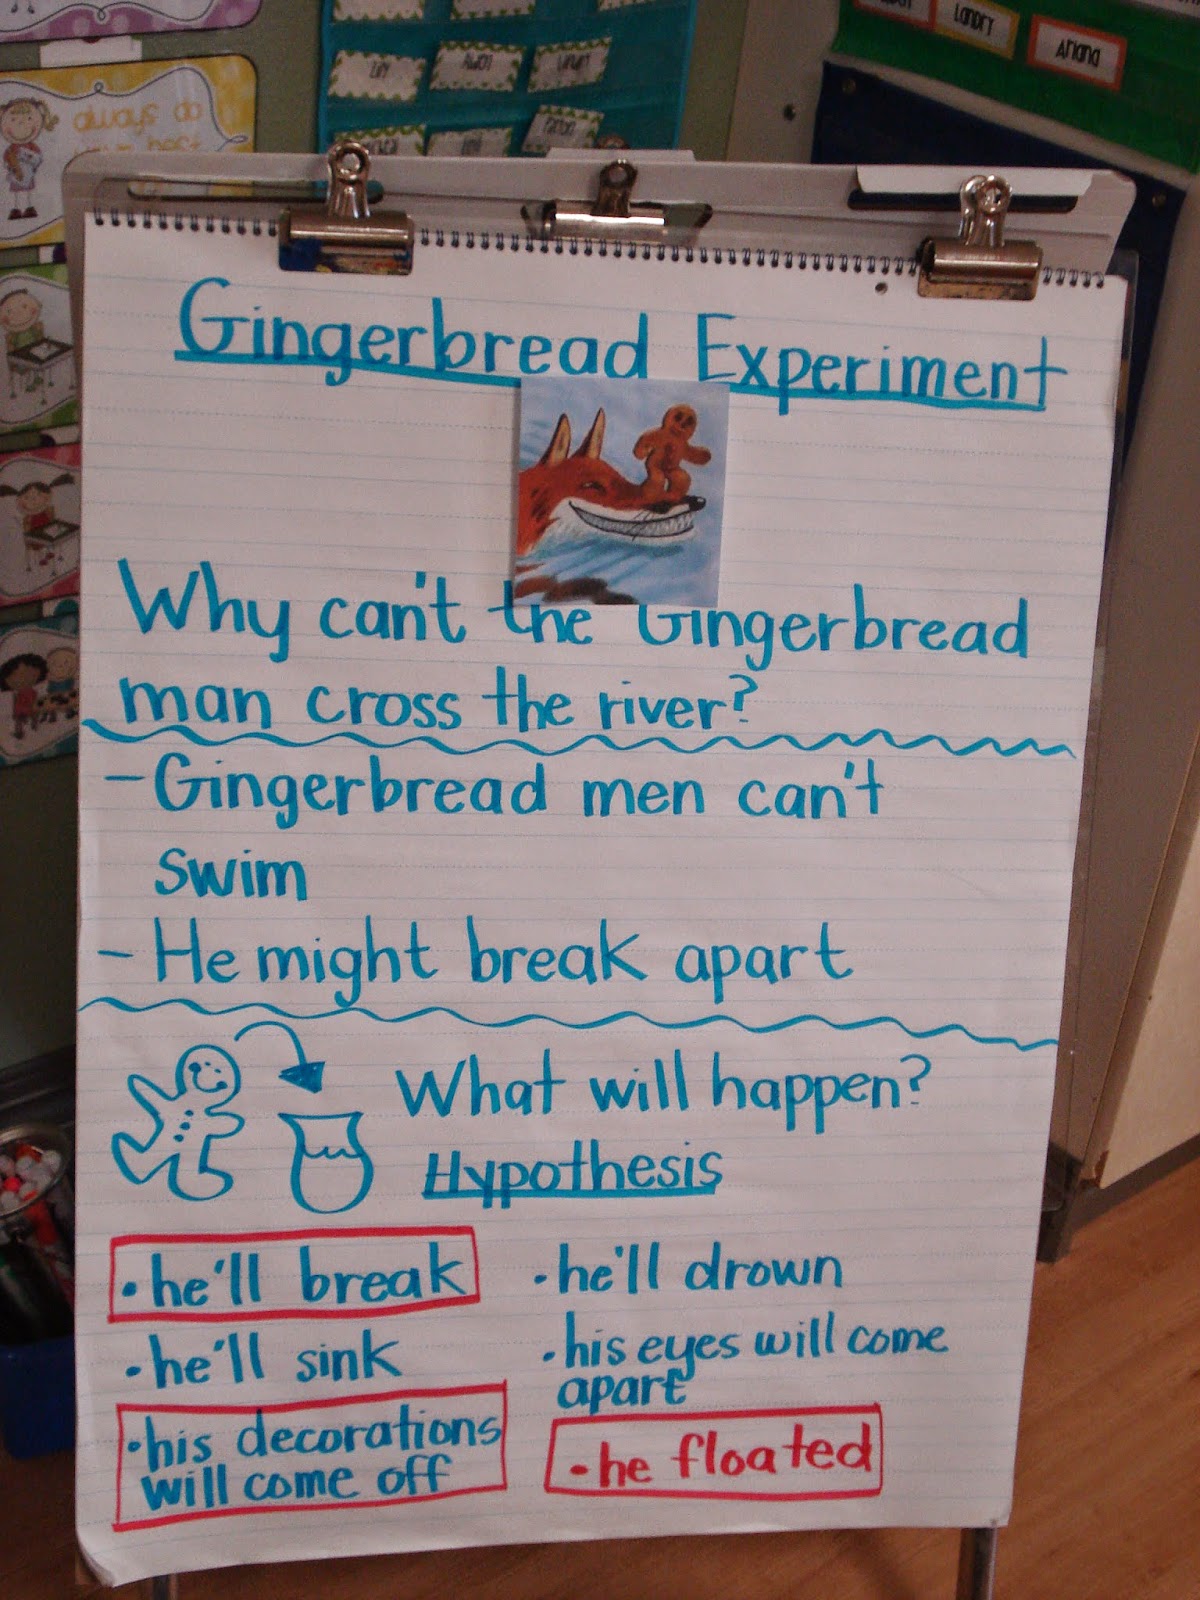 always do
your best
Landry
Ariana
Gingerbread Experiment
Why can't the Gingerbread
man cross the river?
- Gingerbread men can't
swim
- He might break apart
What will happen?
Hypothesis
• he'll break
• he'll sink
• his decorations
will come off
• he'll drown
• his eyes will come
apart
• he floated